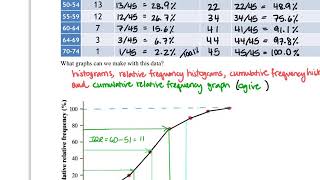 50-54 13 13/45 = 28.9% 22 22/45 = 48.9%
55-59 12 12/45 = 26.7% 34 34/45 = 75.6%
60-64 7 7/45 = 15.6% 41 41/45 = 91.1%
64-69 3 3/45 = 6.7% 44 44/45 = 97.8%
70-74 1 1/45 = 2.2% 45 45/45 = 100.0%
What graphs can we make with this data?
histograms, relative frequency histograms, cumulative frequency hist
and cumulative relative frequency graph (ogive)
100
80
60
40
20
IQR = 60-51 = 11
ulative relative frequency (%)